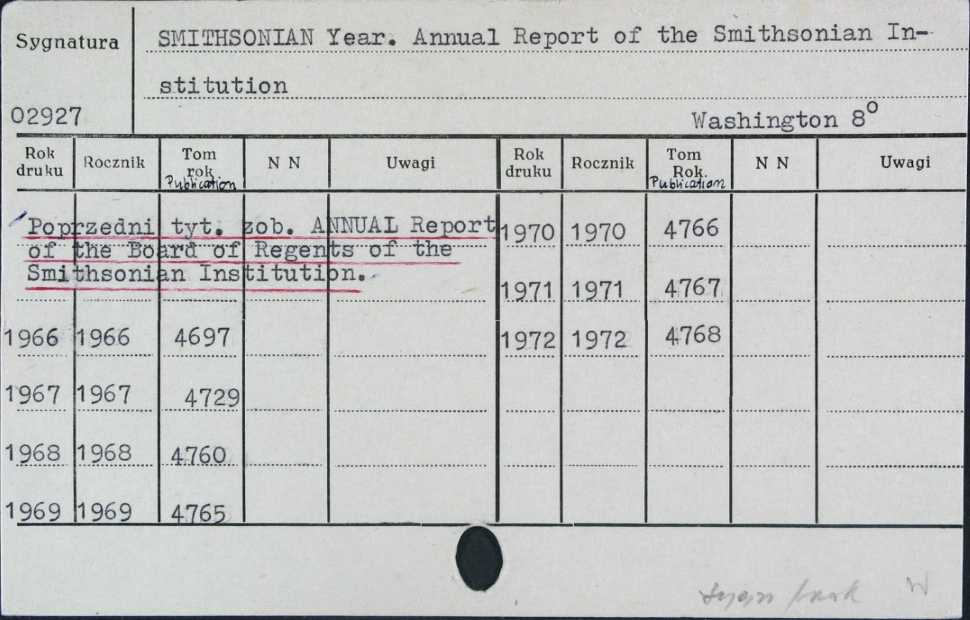 Sygnatura
SMITHSONIAN Year. Annual Report of the Smithsonian In-
stitution
02927
Washington 8o
Rok druku Rocznik Tom rok Publication N N Uwagi Rok druku Rocznik Tom Rok. Publication N N Uwagi
Poprzedni tyt. zob. ANNUAL Report
of the Board of Regents of the
Smithsonian Institution.
1966 1966 4697
1967 1967 4729
1968 1968 4760
1969 1969 4765
1970 1970 4766
1971 1971 4767
1972 1972 4768
W